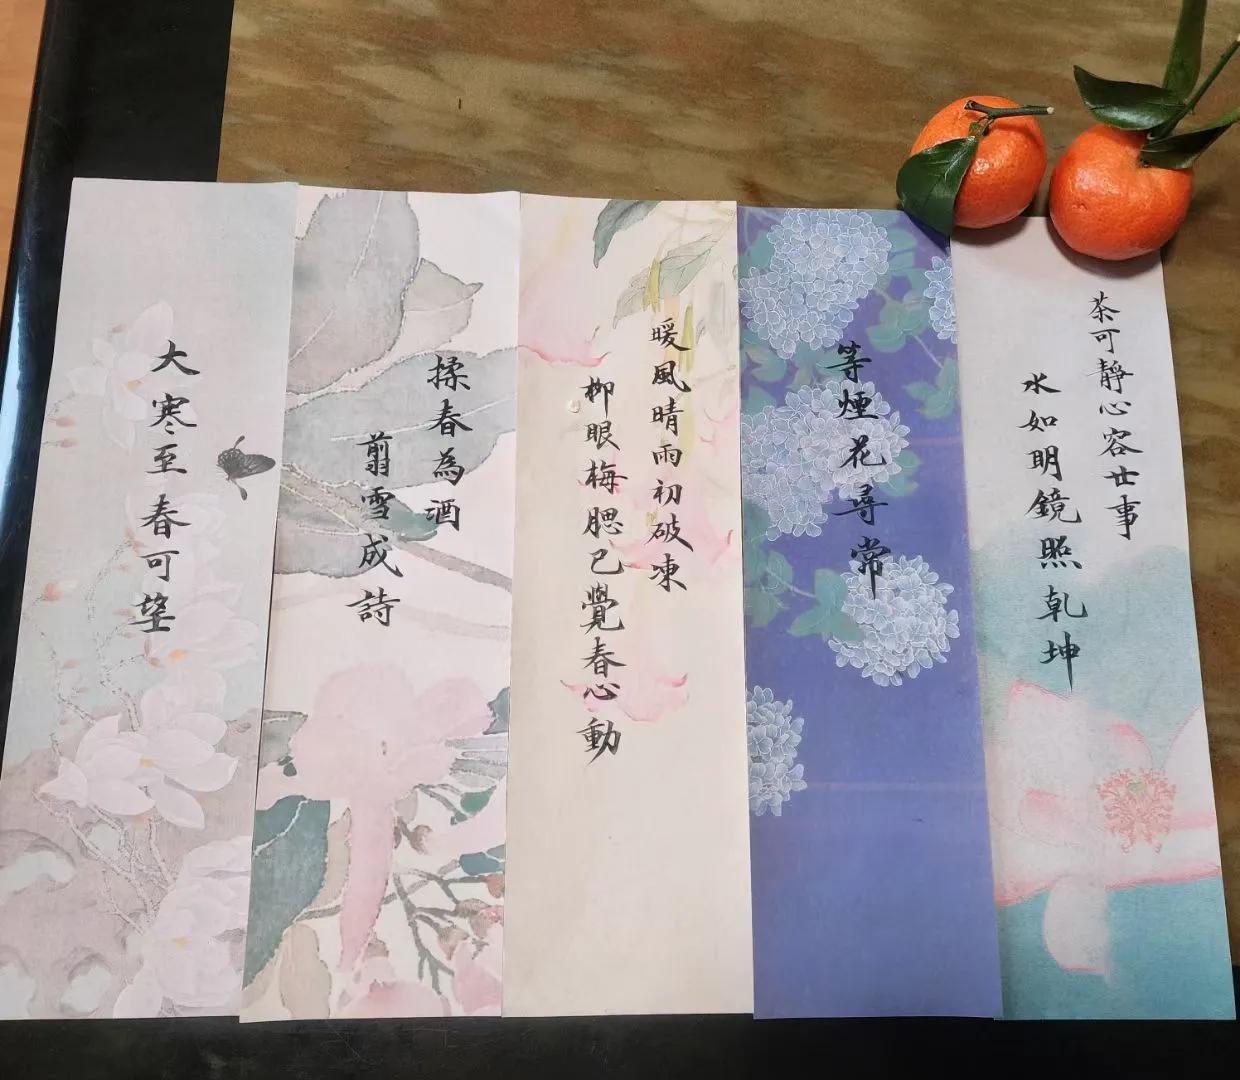 大寒至春可望
揉春為酒
翦雪成詩
暖風晴雨初破凍
柳眼梅腮已覺春心動
等煙花尋常
茶可靜心容世事
水如明鏡照乾坤